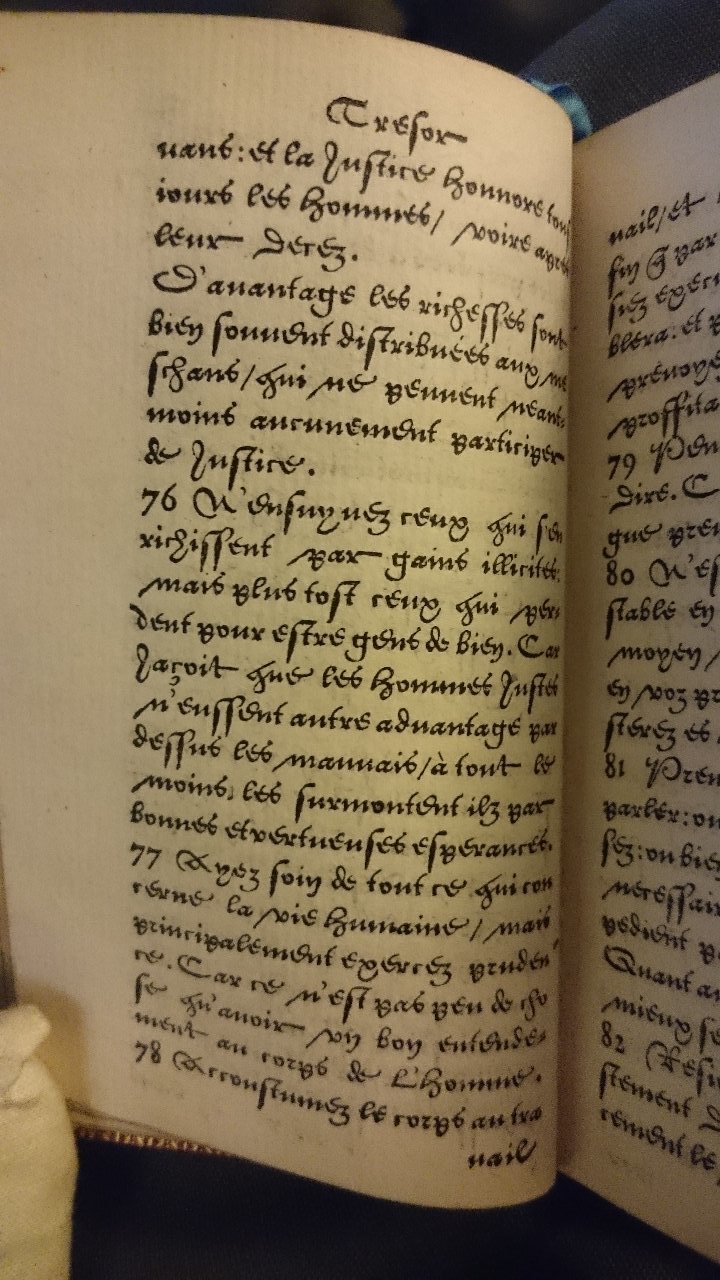 Tresor
uans: et la Justice honnore tous
iours les hommes/ voire apres
leur decez.
D'auantage les richesses sont
bien souuent distribuées aux me
schans/qui ne peuuent neant=
moins aucunement participer
de Justice.
76 N'ensuyuez ceux qui s'en
richissent par gains illicites:
mais plus tost ceux qui per
dent pour estre gens de bien. Car
Jaçoit que les hommes Justes
n'eussent autre aduantage par
dessus les mauuais/à tout le
moins, les surmontent ilz par
bonnes et vertueuses esperances.
77 Ayez soin de tout ce qui con
cerne la vie humaine/ mais
principalement exercez pruden
ce. Car ce n'est pas peu de cho
se qu'auoir vn bon entende=
ment au corps de l'homme.
78 Accoustumez le corps au tra
uail
uail/et
fin q par
siez execu
blera: et p
preuoye
proffita
79 Pen
dire. C
que pren
80 N'es
stable en
moyen/
en voz pr
sterez es
81 Pren
parler: ou
sez: ou bien
necessair
pedient p
Quant au
mieux se
82 Resi
stement
cement le